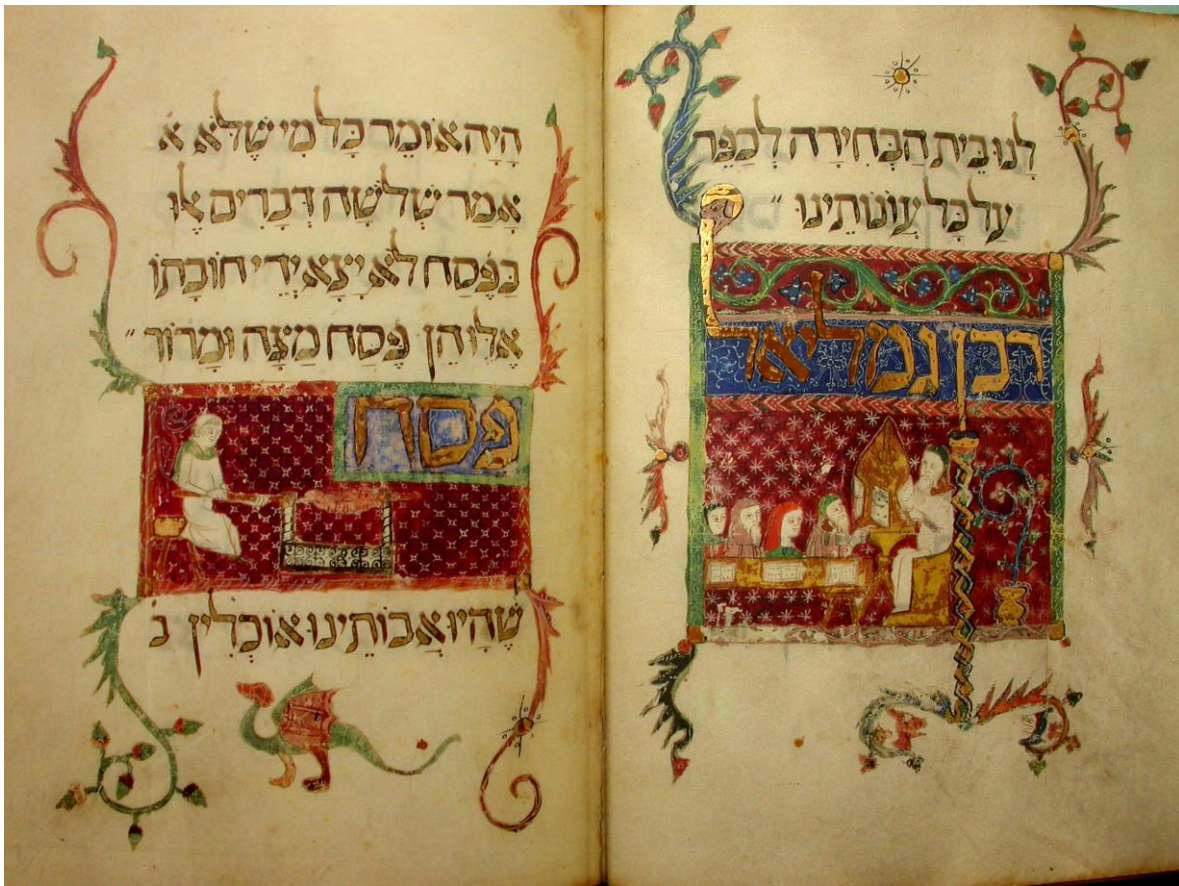 לָנוּ בֵּית הַבְּחִירָה לְכַפֵּר
עַל כָּל עֲוֹנוֹתֵינוּ
רבן גמליאל
הָיָה אוֹמֵר כָּל מִי שֶׁלֹּא א
אָמַר שְׁלֹשָׁה דְּבָרִים אֵלּוּ
בַּפֶּסַח לֹא יָצָא יְדֵי חוֹבָתוֹ
אֵלּוּ הֵן פֶּסַח מַצָּה וּמָרוֹר
פֶּסַח
שֶׁהָיוּ אֲבוֹתֵינוּ אוֹכְלִין